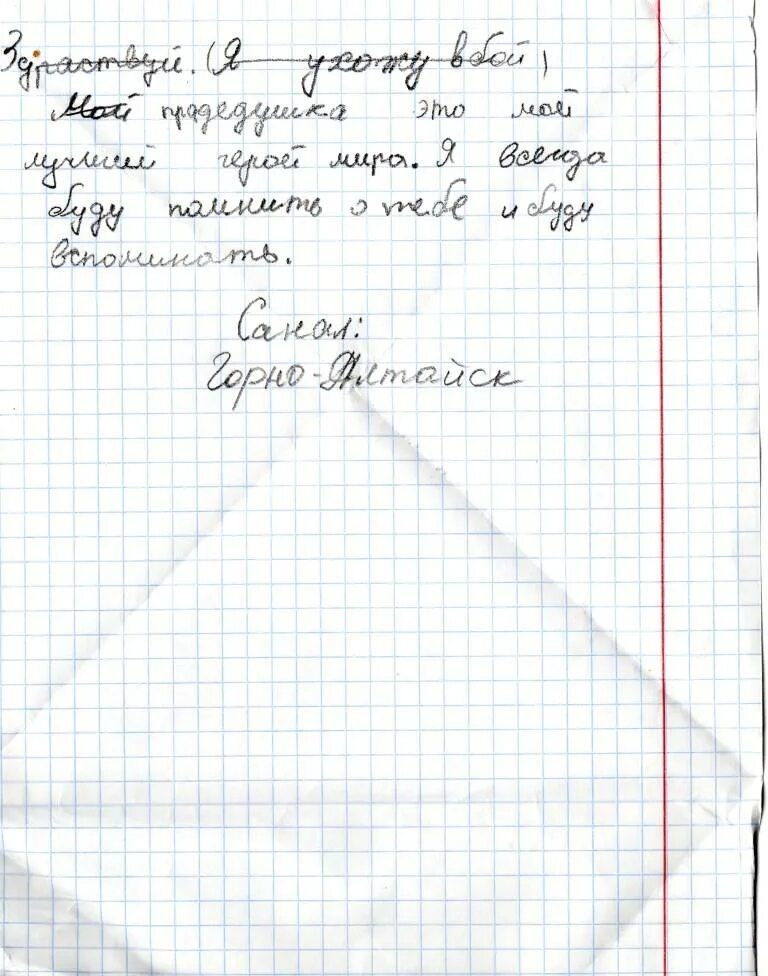 Здраствуй. (Я ухожу в бой)
Мой прадедушка это мой
лучший герой мира. Я всегда
буду помнить о тебе и буду
вспоминать.
Санал:
Горно-Алтайск